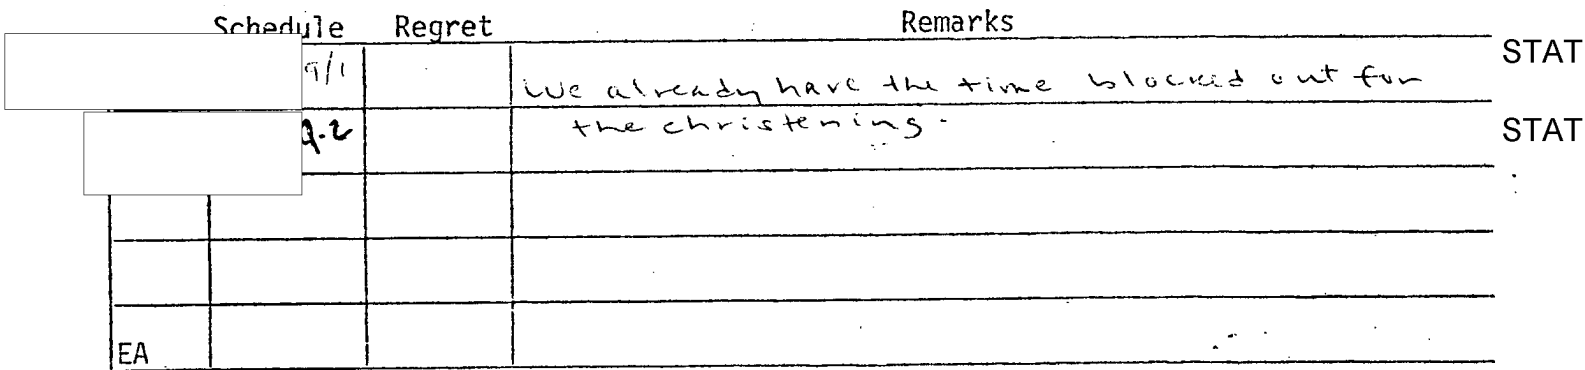 Schedule Regret Remarks
STAT
9/1 We already have the time blocked out for
9.2 the christening.
STAT
EA